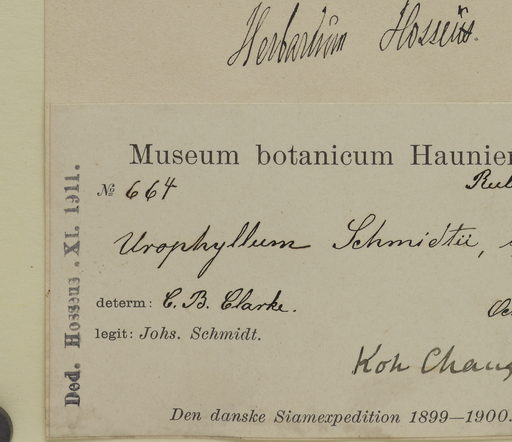 Herbarium Hosseus.
Museum botanicum Haunien
№ 664
Rub
Urophyllum Schmidtii,
determ: C. B. Clarke.
Oc
legit: Johs. Schmidt.
Koh Chang
Den danske Siamexpedition 1899—1900.
Ded. Hosseus. XI. 1911.